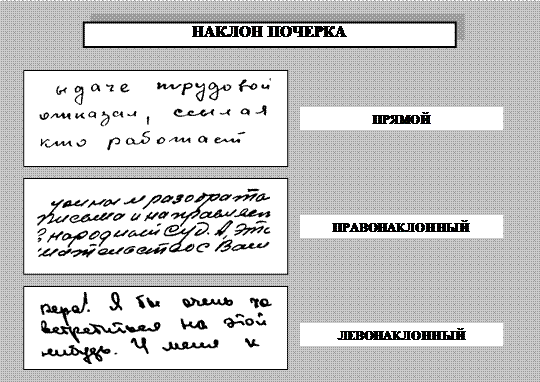 НАКЛОН ПОЧЕРКА
ыдаче трудовой
отказал, ссылая
кто работает
ПРЯМОЙ
разобрата
письма и направляет
народный Суд. А, эти
с Ваш
ПРАВОНАКЛОННЫЙ
вера! Я бы очень
встретиться на этой
нибудь. И меня к
ЛЕВОНАКЛОННЫЙ